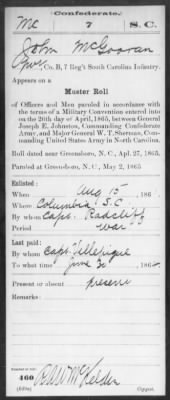 Confederate.
Mc 7 S.C.
John McGowan
Pvt, Co. B, 7 Reg't South Carolina Infantry.
Appears on a
Muster Roll
of Officers and Men paroled in accordance with
the terms of a Military Convention entered into
on the 26th day of April, 1865, between General
Joseph E. Johnston, Commanding Confederate
Army, and Major General W. T. Sherman, Com-
manding United States Army in North Carolina.
Roll dated near Greensboro, N. C., Apl. 27, 1865.
Paroled at Greensboro, N. C., May 2, 1865.
Enlisted:
When Aug 15, 186
Where Columbia S.C.
By whom Capt. Radcliff
Period war
Last paid:
By whom Capt. Villepigue
To what time June 30, 186
Present or absent present
Remarks:
Number of roll:
460
Copyist.